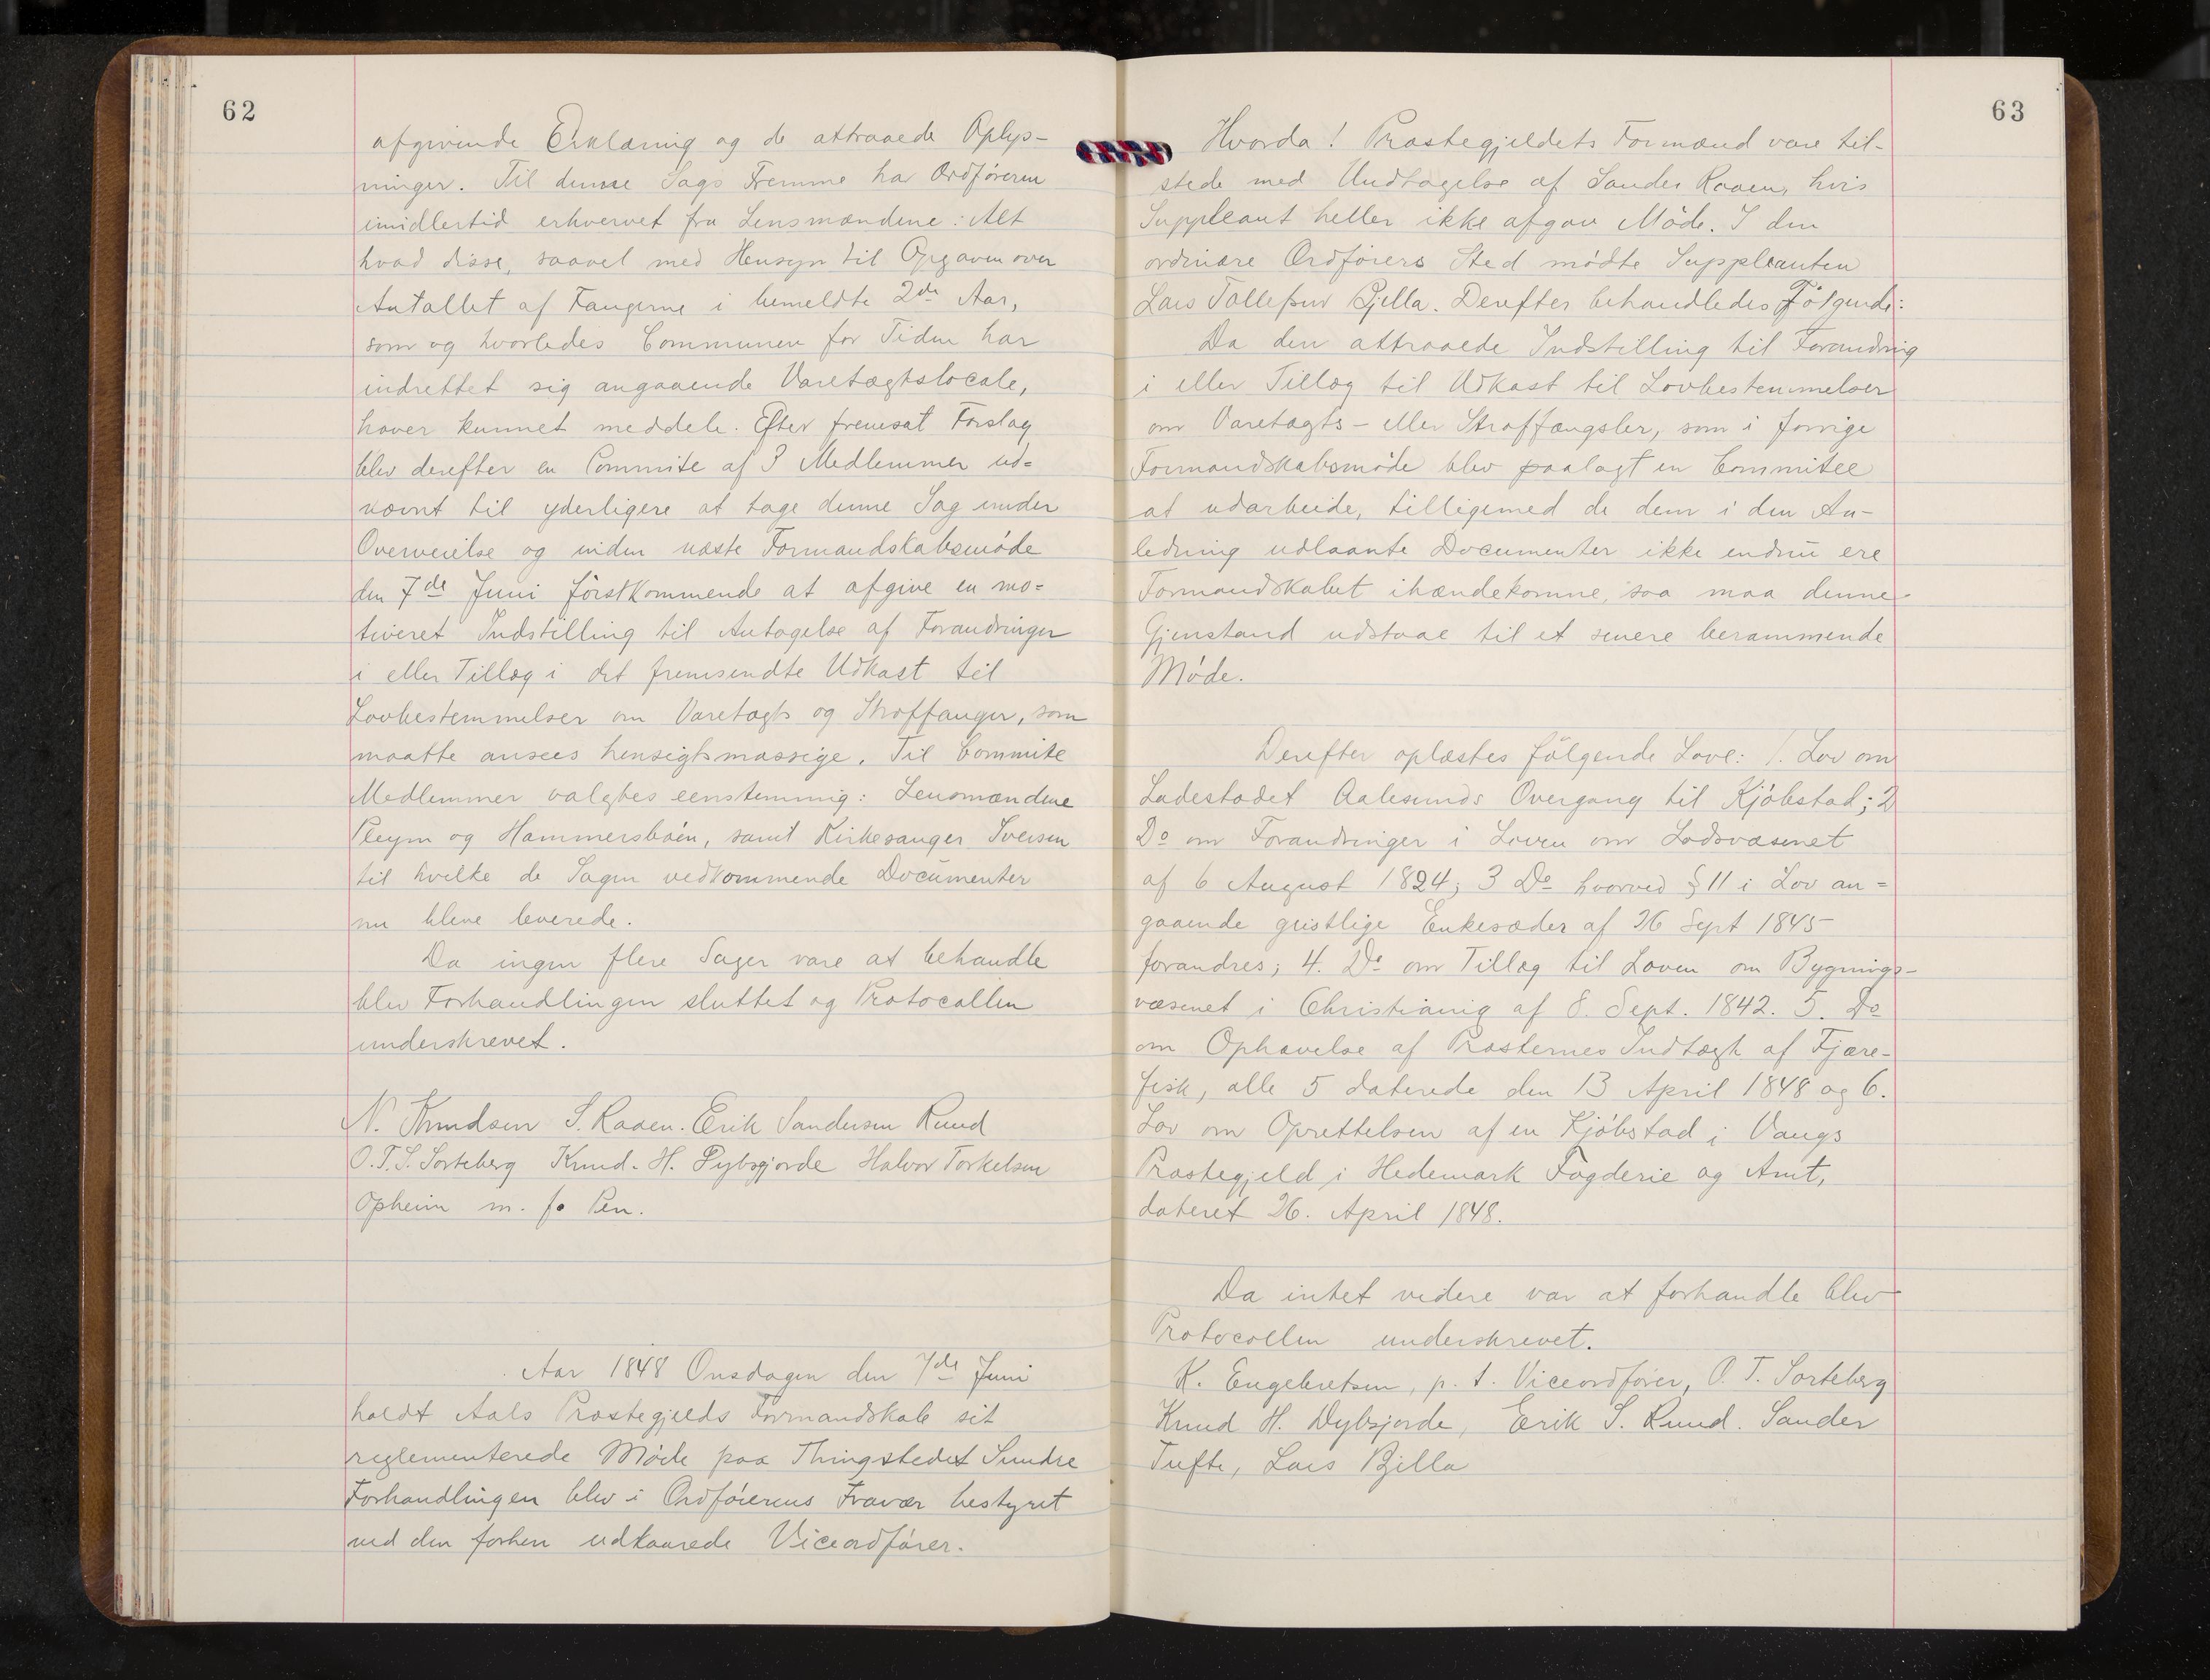 62
afgivende Erklæring og de attraaede Oplys-
ninger. Til denne Sags Fremme har Ordføreren
imidlertid erhvervet fra Lensmændene: Alt
hvad disse, saavel med Hensyn til Opgaven over
Antallet af Fangerne i bemeldte 2de Aar,
som og hvorledes Communen for Tiden har
indrettet sig angaaende Varetægtslocale,
haver kunnet meddele. Efter fremsat Forslag
blev derefter en Commite af 3 Medlemmer ud=
nævnt til yderligere at tage denne Sag under
Overveielse og inden næste Formandskabsmøde
den 7de Juni førstkommende at afgive en mo=
tiveret Indstilling til Antagelse af Forandringer
i eller Tillæg i det fremsendte Udkast til
Lovbestemmelser om Varetægts og Straffanger, som
maatte ansees hensigtsmæssige. Til Commite
Medlemmer valgtes eenstemmig: Lensmændene
Pleym og Hammersbøen, samt Kirkesanger Iversen
til hvilke de Sagen vedkommende Documenter
nu bleve leverede.
Da ingen flere Sager vare at behandle
blev Forhandlingen sluttet og Protocollen
underskrevet.
N. Knudsen S. Raaen. Erik Sandersen Ruud
O.T.S. Sorteberg Knud. H. Dybsjorde Halvor Torkelsen
Opheim m. f. Pen.
Aar 1848 Onsdagen den 7de Juni
holdt Aals Præstegjelds Formandskab sit
reglementerede Møde paa Thingstedet Sundre
Forhandlingen blev i Ordførerens Fravær bestyret
ved den forhen udkaarede Viceordfører.
63
Hvorda! Præstegjeldets Formænd vare til-
stede med Undtagelse af Sander Raaen, hvis
Suppleant heller ikke afgav Møde. I den
ordinære Ordførers Sted mødte Suppleanten
Lars Tollefsen Bjella. Derefter behandledes Følgende:
Da den attraaede Indstilling til Forandring
i eller Tillæg til Udkast til Lovbestemmelser
om Varetægts- eller Straffængsler, som i forrige
Formandskabsmøde blev paalagt en Committee
at udarbeide, tilligemed de dem i den An-
ledning udlaante Documenter ikke endnu ere
Formandskabet ihændekomne, saa maa denne
Gjenstand udstaae til et senere berammende
Møde.
Derefter oplæstes følgende Love: 1. Lov om
Ladestedet Aalesunds Overgang til Kjøbstad; 2
Do om Forandringer i Loven om Lodsvæsenet
af 6 August 1824; 3 Do hvorved § 11 i Lov an=
gaaende geistlige Enkesæder af 26 Sept 1845
forandres; 4. Do om Tillæg til Loven om Bygnings-
væsenet i Christianig af 8. Sept. 1842. 5. Do
om Ophævelse af Præsternes Indtægt af Fjære-
fisk, alle 5 daterede den 13 April 1848 og 6.
Lov om Oprettelsen af en Kjøbstad i Vangs
Præstegjeld i Hedemark Fogderie og Amt,
dateret 26. April 1848.
Da intet videre var at forhandle blev
Protocollen underskrevet.
K. Engebretsen, p. t. Viceordfører, O. T. Sorteberg
Knud H. Dybsjorde, Erik S. Ruud. Sander
Tufte, Lars Bjella